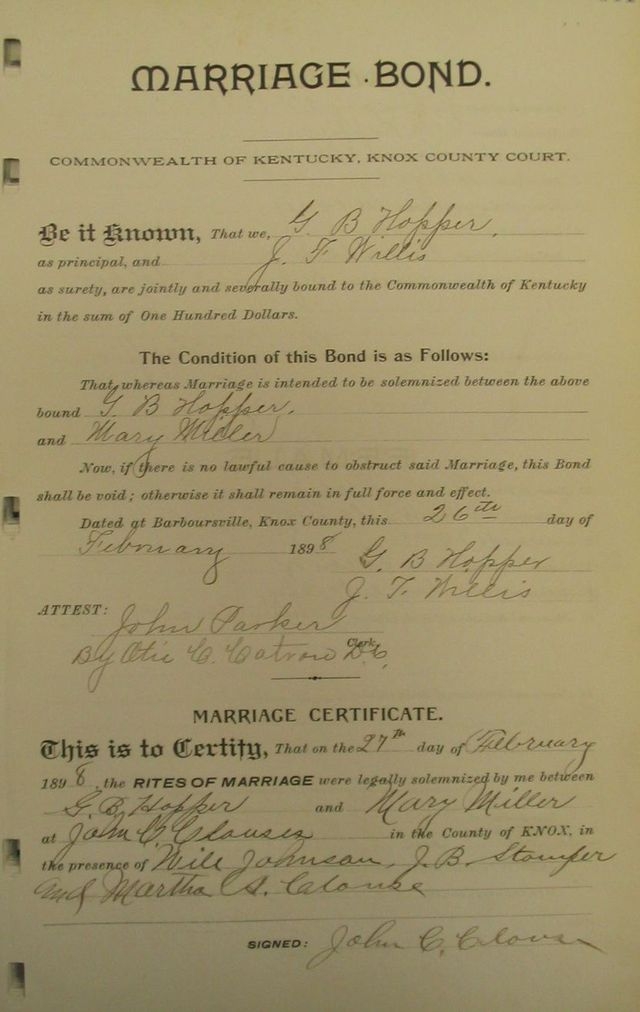 MARRIAGE BOND.
COMMONWEALTH OF KENTUCKY, KNOX COUNTY COURT.
Be it Known, That we, G. B Hopper,
as principal, and J. F Willis
as surety, are jointly and severally bound to the Commonwealth of Kentucky
in the sum of One Hundred Dollars.
The Condition of this Bond is as Follows:
That whereas Marriage is intended to be solemnized between the above
bound G. B Hopper,
and Mary Miller
Now, if there is no lawful cause to obstruct said Marriage, this Bond
shall be void; otherwise it shall remain in full force and effect.
Dated at Barboursville, Knox County, this 26th day of
February 1898
G. B Hopper
J. F. Willis
ATTEST:
John Parker
Clerk
By Otis C. Catron D.C.
MARRIAGE CERTIFICATE.
This is to Certify, That on the 27th day of February
1898, the RITES OF MARRIAGE were legally solemnized by me between
G. B. Hopper and Mary Miller
at John C. in the County of KNOX, in
the presence of Will Johnson, J. B. Stamper
and Martha A. Clouse
SIGNED: John C. Clouse